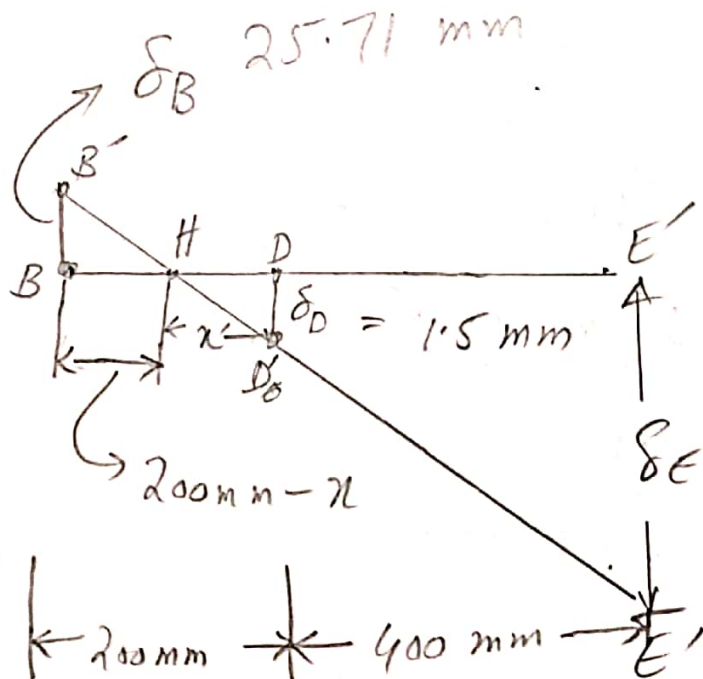 δB 25.71 mm
B′
H D E′
B
x δD = 1.5 mm
D′
δE
200mm - x
200mm 400 mm E′